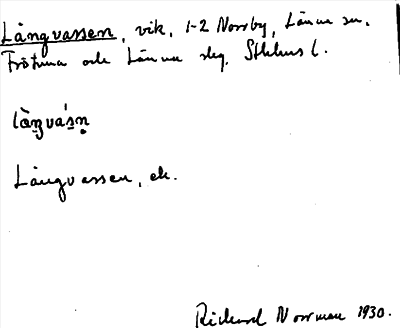 Långvassen, vik, 1-2 Norrby, Länna sn.
Frötuna och Länna skg, Sthlms l.
Långvassen, ek.
Rickard Norrman 1930.